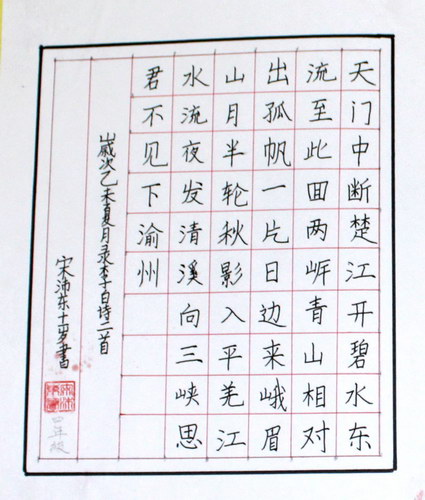 天门中断楚江开碧水东
流至此回两岸青山相对
出孤帆一片日边来峨眉
山月半轮秋影入平羌江
水流夜发清溪向三峡思
君不见下渝州
歲次乙未夏月录李白诗二首
宋沛东十岁書
四年级